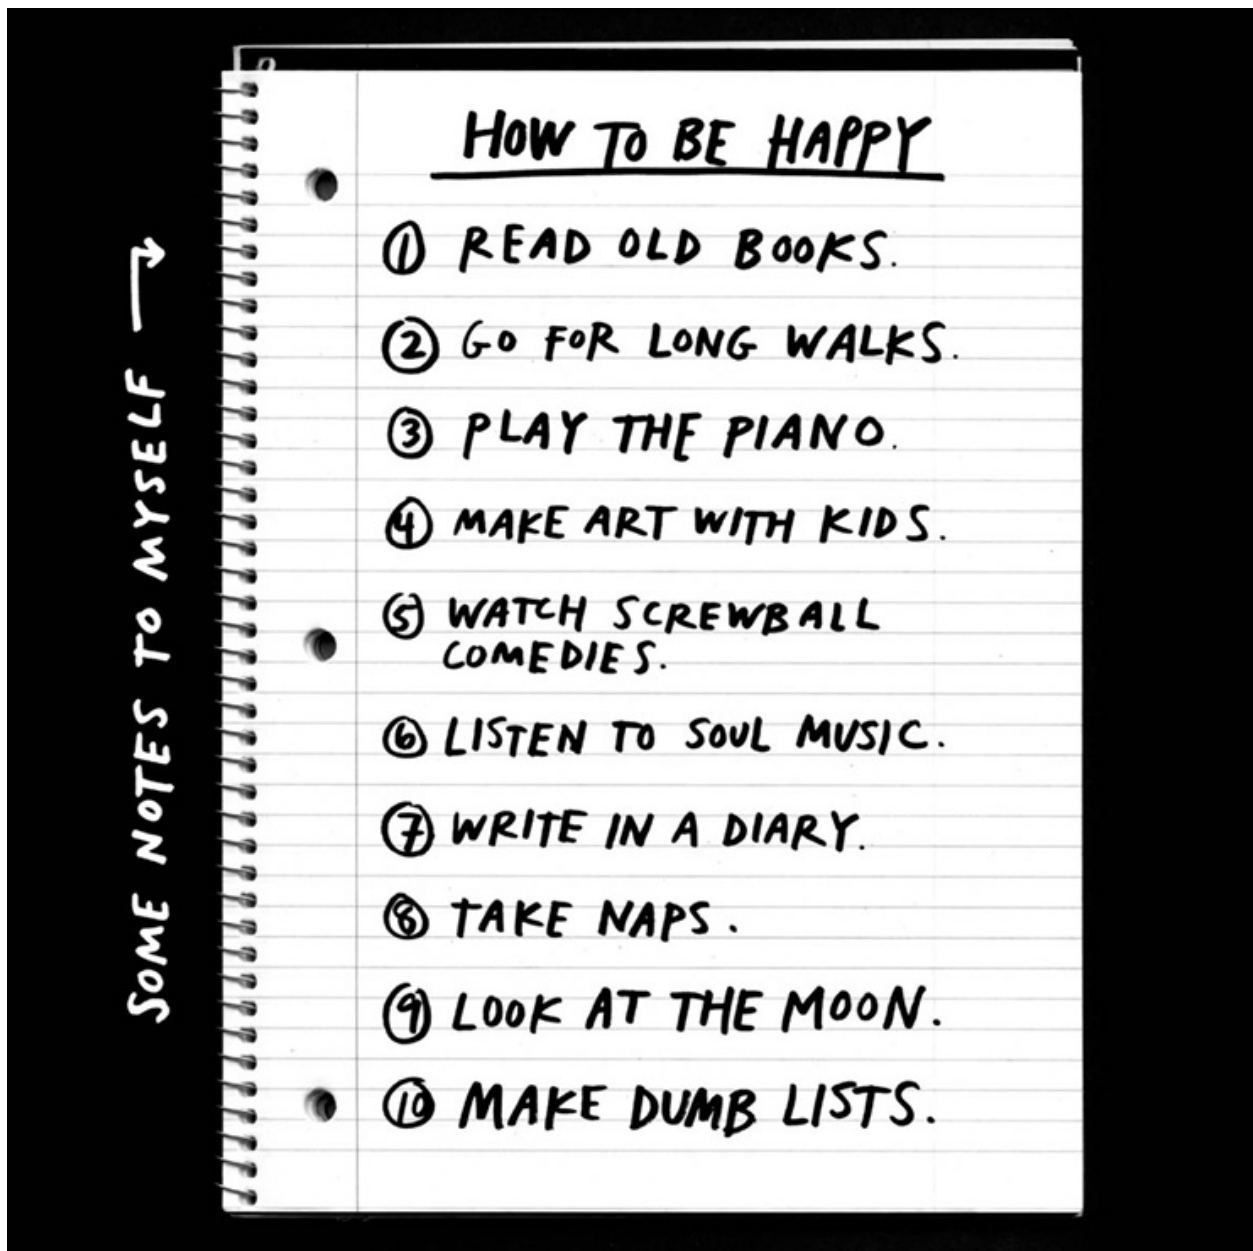 SOME NOTES TO MYSELF →
HOW TO BE HAPPY
① READ OLD BOOKS.
② GO FOR LONG WALKS.
③ PLAY THE PIANO.
④ MAKE ART WITH KIDS.
⑤ WATCH SCREWBALL
COMEDIES.
⑥ LISTEN TO SOUL MUSIC.
⑦ WRITE IN A DIARY.
⑧ TAKE NAPS.
⑨ LOOK AT THE MOON.
⑩ MAKE DUMB LISTS.